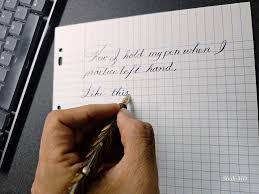 How I hold my pen when I
practice left hand.
Like this